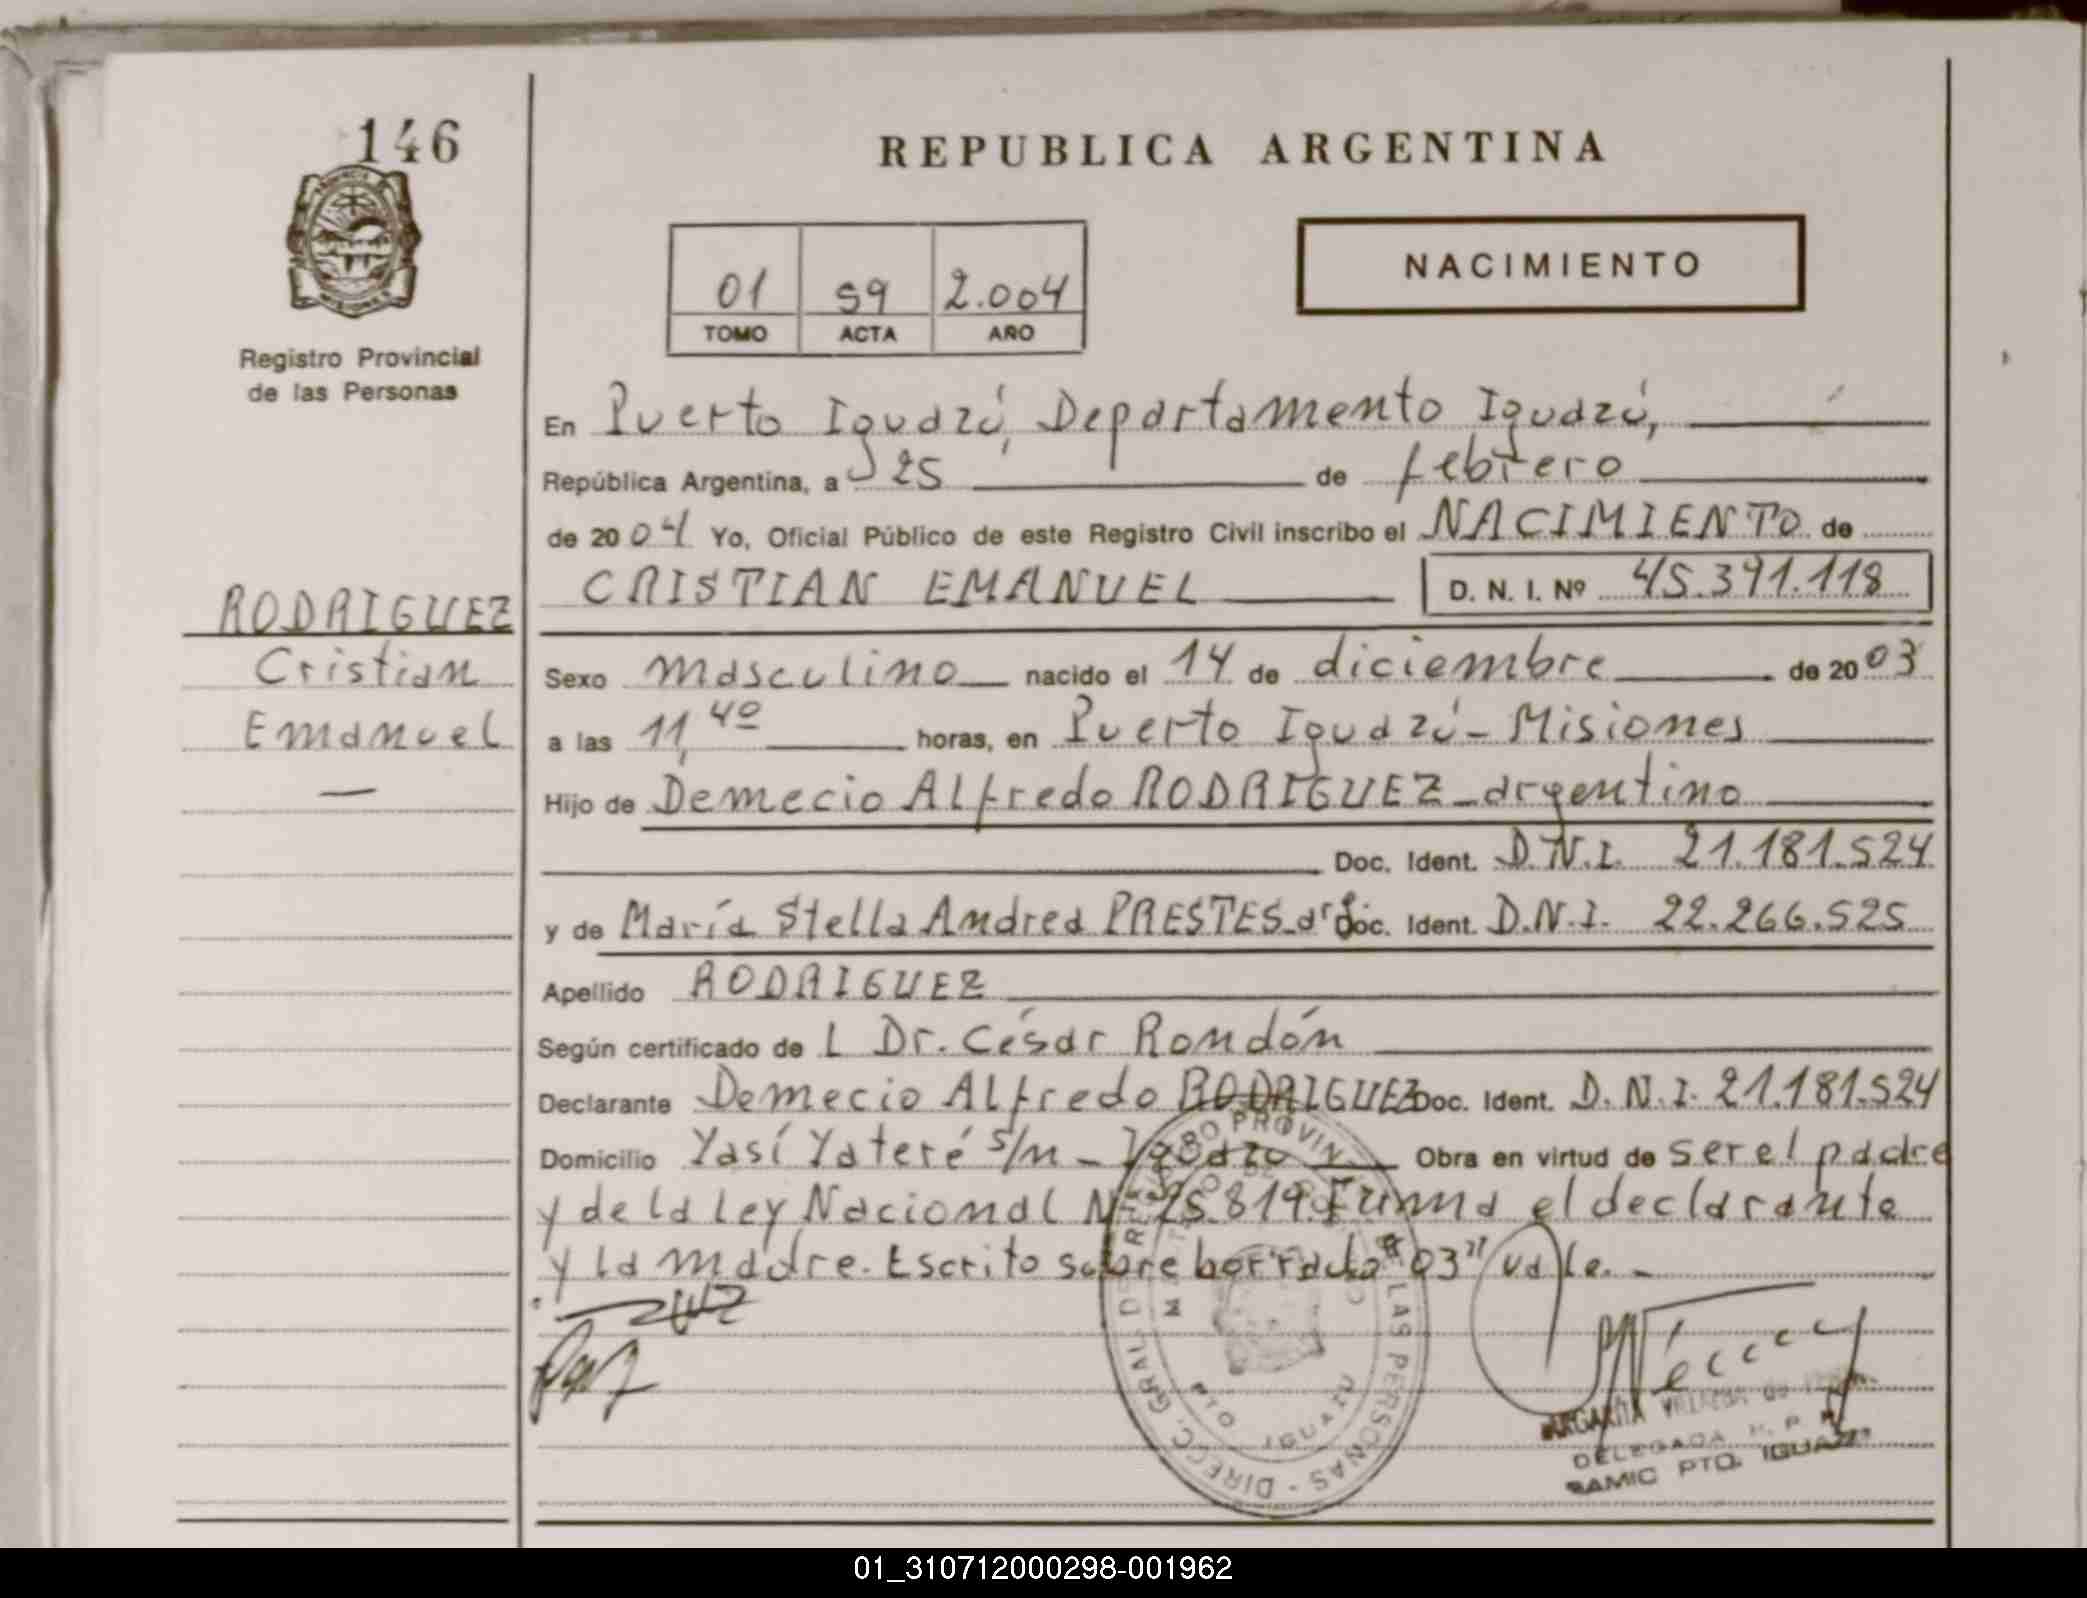 146
REPUBLICA ARGENTINA
NACIMIENTO
01 59 2.004
TOMO ACTA AÑO
Registro Provincial
de las Personas
En Puerto Iguazú, Departamento Iguazú,
República Argentina, a 25 de febrero
de 2004 Yo, Oficial Público de este Registro Civil inscribo el NACIMIENTO de
CRISTIAN EMANUEL D. N. I. Nº 45.391.118
RODRIGUEZ
Cristian
Emanuel
Sexo masculino nacido el 14 de diciembre de 2003
a las 11,40 horas, en Puerto Iguazú - Misiones
Hijo de Demecio Alfredo RODRIGUEZ - argentino
Doc. Ident. D.N.I. 21.181.524
y de María Stella Andrea PRESTES - Doc. Ident. D.N.I. 22.266.525
Apellido RODRIGUEZ
Según certificado de L Dr. César Rondón
Declarante Demecio Alfredo RODRIGUEZ Doc. Ident. D.N.I. 21.181.524
Domicilio Yasí Yateré s/n - Iguazú Obra en virtud de ser el padre
y de la Ley Nacional Nº 25.819. Firma el declarante
y la madre. Escrito sobre borrado "03" vale. -
DIRECC. GRAL DE REGISTRO PROVINCIAL DE LAS PERSONAS
PTO IGUAZU
DELEGADA
SAMIC PTO. IGUAZU
01_310712000298-001962